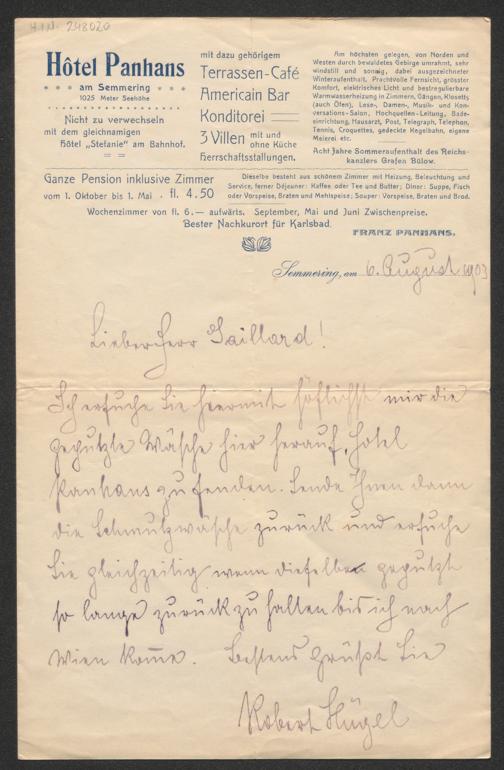 H.I.N. 248020
Hôtel Panhans
am Semmering
1025 Meter Seehöhe
Nicht zu verwechseln
mit dem gleichnamigen
Hôtel „Stefanie“ am Bahnhof.
mit dazu gehörigem
Terrassen-Café
Americain Bar
Konditorei
3 Villen mit und
ohne Küche
Herrschaftsstallungen.
Am höchsten gelegen, von Norden und
Westen durch bewaldetes Gebirge umrahmt, sehr
windstill und sonnig, dabei ausgezeichneter
Winteraufenthalt. Prachtvolle Fernsicht, grösster
Komfort, elektrisches Licht und bestregulierbare
Warmwasserheizung in Zimmern, Gängen, Klosetts
(auch Öfen), Lese-, Damen-, Musik- und Kon-
versations-Salon, Hochquellen-Leitung, Bade-
einrichtung, Hausarzt, Post, Telegraph, Telephon,
Tennis, Croquettes, gedeckte Kegelbahn, eigene
Meierei etc.
Acht Jahre Sommeraufenthalt des Reichs-
kanzlers Grafen Bülow.
Ganze Pension inklusive Zimmer
vom 1. Oktober bis 1. Mai . fl. 4.50
Dieselbe besteht aus schönem Zimmer mit Heizung, Beleuchtung und
Service, ferner Déjeuner: Kaffee oder Tee und Butter; Diner: Suppe, Fisch
oder Vorspeise, Braten und Mehlspeise; Souper: Vorspeise, Braten und Brod.
Wochenzimmer von fl. 6.— aufwärts. September, Mai und Juni Zwischenpreise.
Bester Nachkurort für Karlsbad.
FRANZ PANHANS.
Semmering, am 6. August 1903
Lieber Herr Gaillard!
Ich ersuche Sie hiermit höflichst mir die
geputzte Wäsche hier herauf, Hotel
Panhans zu senden. Sende Ihnen dann
die Schmutzwäsche zurück und ersuche
Sie gleichzeitig wenn dieselbe geputzt
so lange zurück zu halten bis ich nach
Wien kome. Bestens grüßt Sie
Robert Hügel